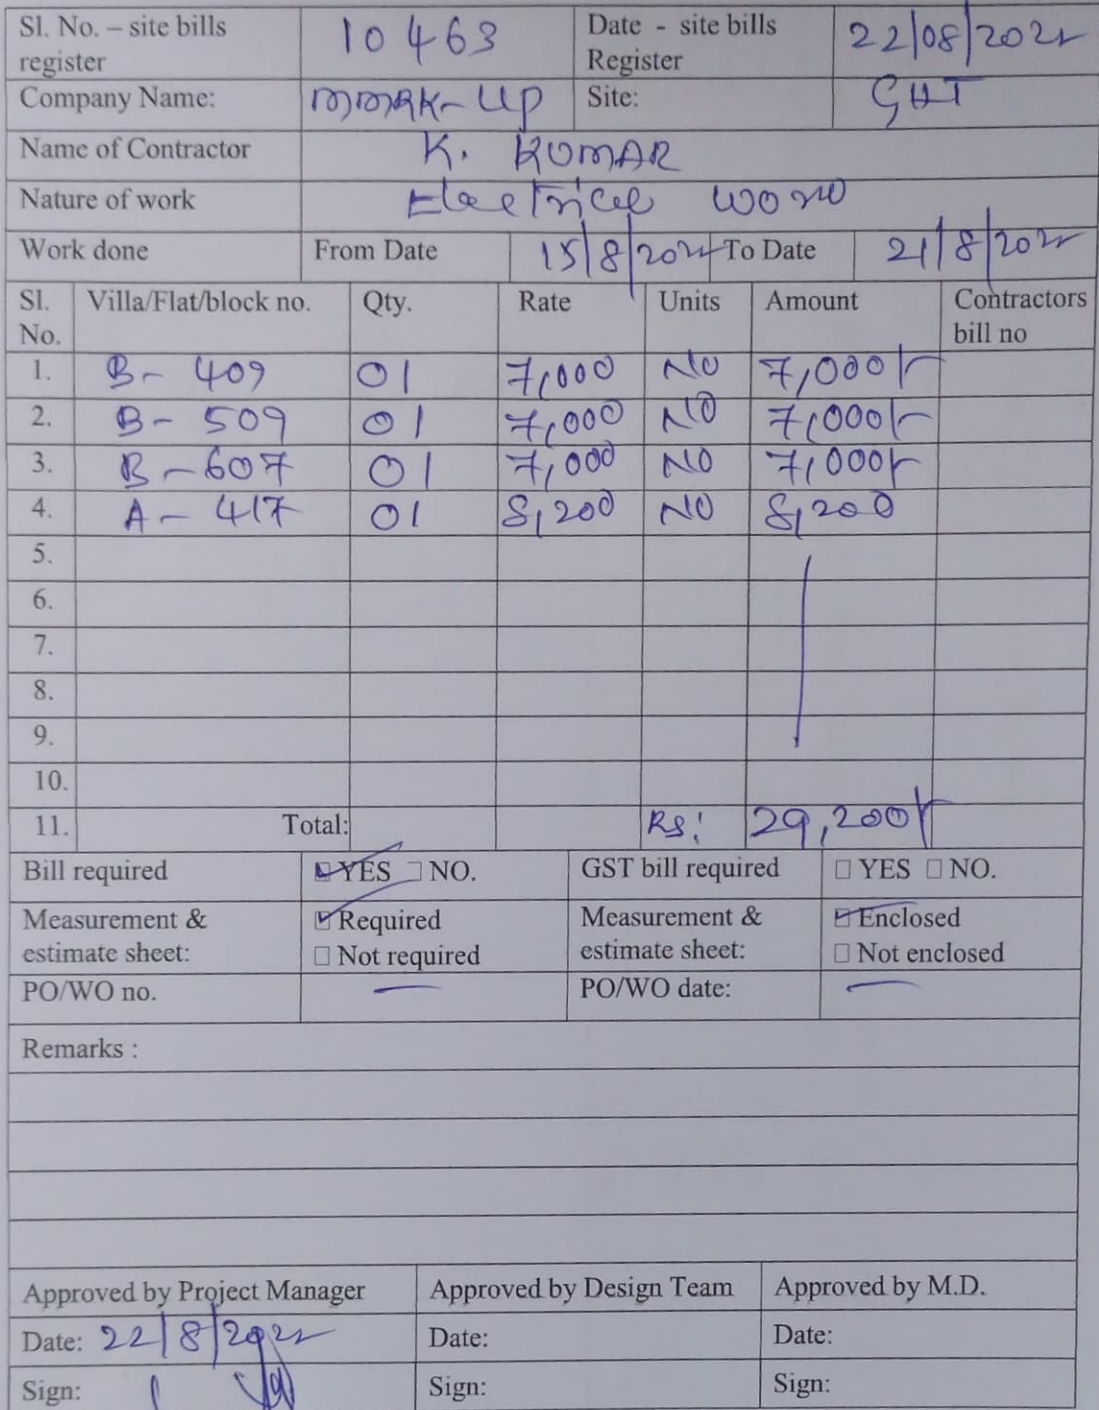 Sl. No. – site bills register 10463 Date - site bills Register 22/08/2022
Company Name: MMRK-UP Site: GHT
Name of Contractor K. KUMAR
Nature of work Electrical work
Work done From Date 15/8/2022 To Date 21/8/2022
Sl. No. Villa/Flat/block no. Qty. Rate Units Amount Contractors bill no
1. B- 409 01 7,000 NO 7,000/-
2. B- 509 01 7,000 NO 7,000/-
3. B-607 01 7,000 NO 7,000/-
4. A- 417 01 8,200 NO 8,200
5.
6.
7.
8.
9.
10.
11. Total: Rs: 29,200/-
Bill required YES NO. GST bill required YES NO.
Measurement & estimate sheet: Required Measurement & estimate sheet: Enclosed
Not required Not enclosed
PO/WO no. — PO/WO date: —
Remarks :
Approved by Project Manager Approved by Design Team Approved by M.D.
Date: 22/8/2022 Date: Date:
Sign: Sign: Sign: